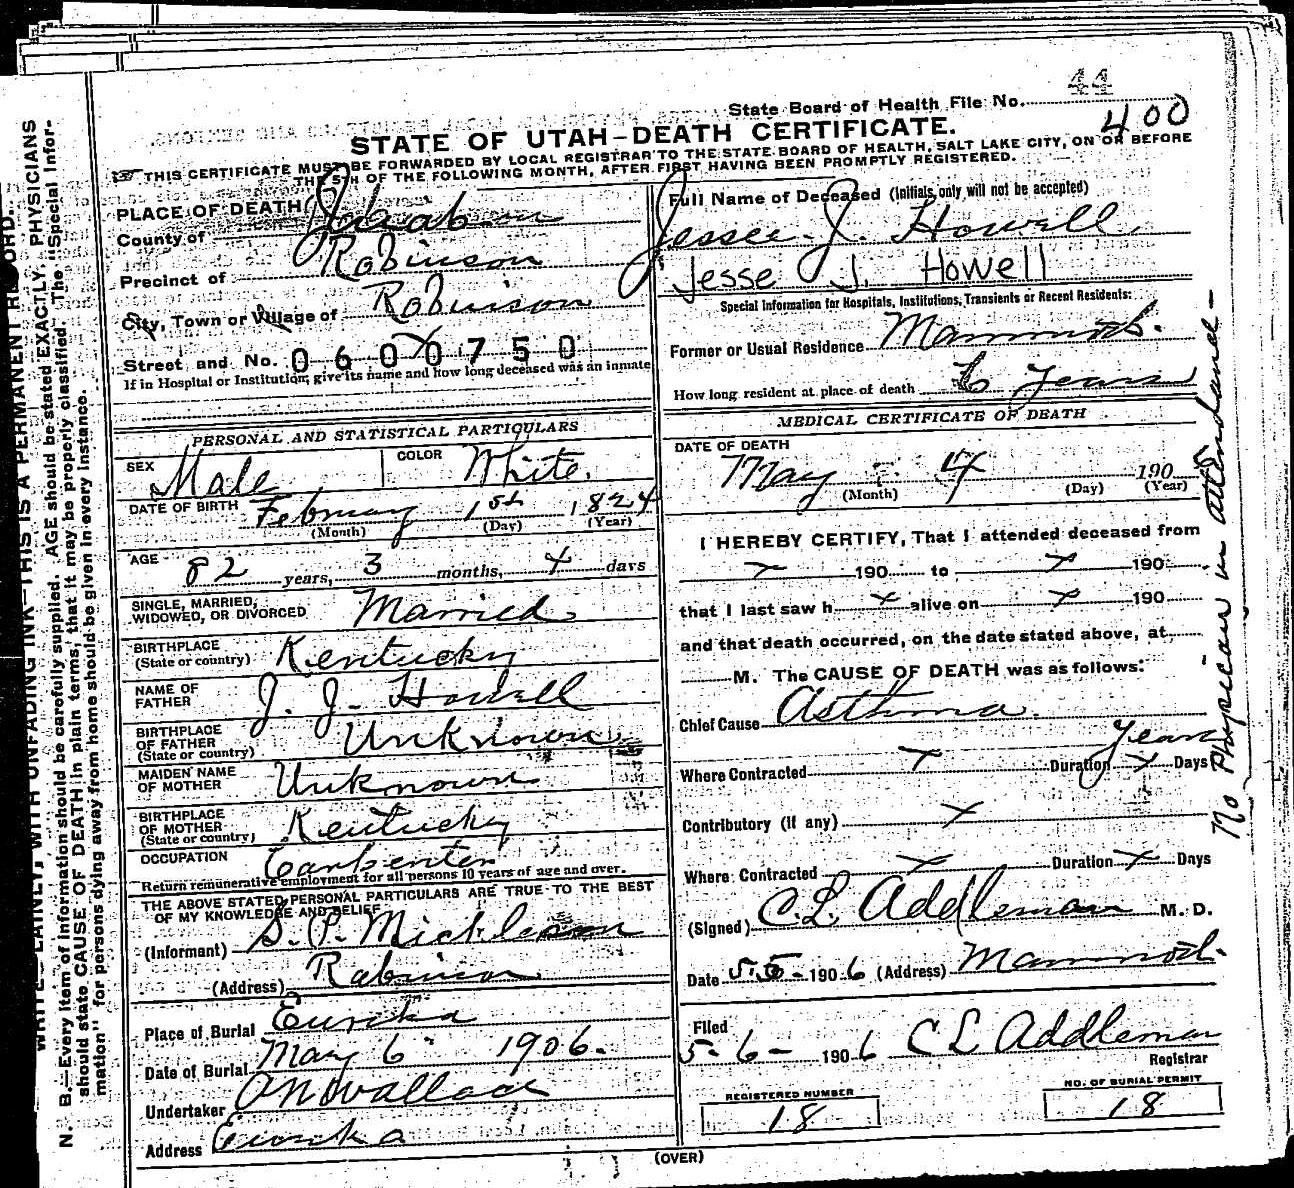 44
State Board of Health File No.
400
STATE OF UTAH–DEATH CERTIFICATE.
THIS CERTIFICATE MUST BE FORWARDED BY LOCAL REGISTRAR TO THE STATE BOARD OF HEALTH, SALT LAKE CITY, ON OR BEFORE
THE 5TH OF THE FOLLOWING MONTH, AFTER FIRST HAVING BEEN PROMPTLY REGISTERED.
PLACE OF DEATH
County of Juab
Precinct of Robinson
City, Town or Village of Robinson
Street and No. 0600750
If in Hospital or Institution, give its name and how long deceased was an inmate
PERSONAL AND STATISTICAL PARTICULARS
SEX Male COLOR White.
DATE OF BIRTH February 1st 1824
(Month) (Day) (Year)
AGE 82 years, 3 months, 4 days
SINGLE, MARRIED,
WIDOWED, OR DIVORCED Married
BIRTHPLACE
(State or country) Kentucky
NAME OF
FATHER J. J. Howell
BIRTHPLACE
OF FATHER
(State or country) Unknown
MAIDEN NAME
OF MOTHER Unknown
BIRTHPLACE
OF MOTHER
(State or country) Kentucky
OCCUPATION Carpenter
Return remunerative employment for all persons 10 years of age and over.
THE ABOVE STATED PERSONAL PARTICULARS ARE TRUE TO THE BEST
OF MY KNOWLEDGE AND BELIEF
(Informant) S. P. Mickleson
(Address) Robinson
Place of Burial Eureka
Date of Burial May 6" 1906.
Undertaker A N Wallace
Address Eureka
Full Name of Deceased (Initials only will not be accepted)
Jessee J. Howell
Jesse J. Howell
Special Information for Hospitals, Institutions, Transients or Recent Residents:
Former or Usual Residence Mammoth.
How long resident at place of death 6 Years
MEDICAL CERTIFICATE OF DEATH
DATE OF DEATH
May 4 190
(Month) (Day) (Year)
I HEREBY CERTIFY, That I attended deceased from
190 to 190
that I last saw h alive on 190
and that death occurred, on the date stated above, at
M. The CAUSE OF DEATH was as follows:
Chief Cause Asthma.
Years
Where Contracted Duration Days
Contributory (if any)
Where Contracted Duration Days
(Signed) C. L. Addleman M. D.
Date 5-5- 1906 (Address) Mammoth.
Filed
5-6- 1906 C L Addleman
Registrar
REGISTERED NUMBER
18
NO. OF BURIAL PERMIT
18
(OVER)
No Physician in attendance –
WRITE PLAINLY, WITH UNFADING INK–THIS IS A PERMANENT RECORD.
N. B.—Every item of information should be carefully supplied. AGE should be stated EXACTLY. PHYSICIANS
should state CAUSE OF DEATH in plain terms, that it may be properly classified. The "Special Infor-
mation" for persons dying away from home should be given in every instance.